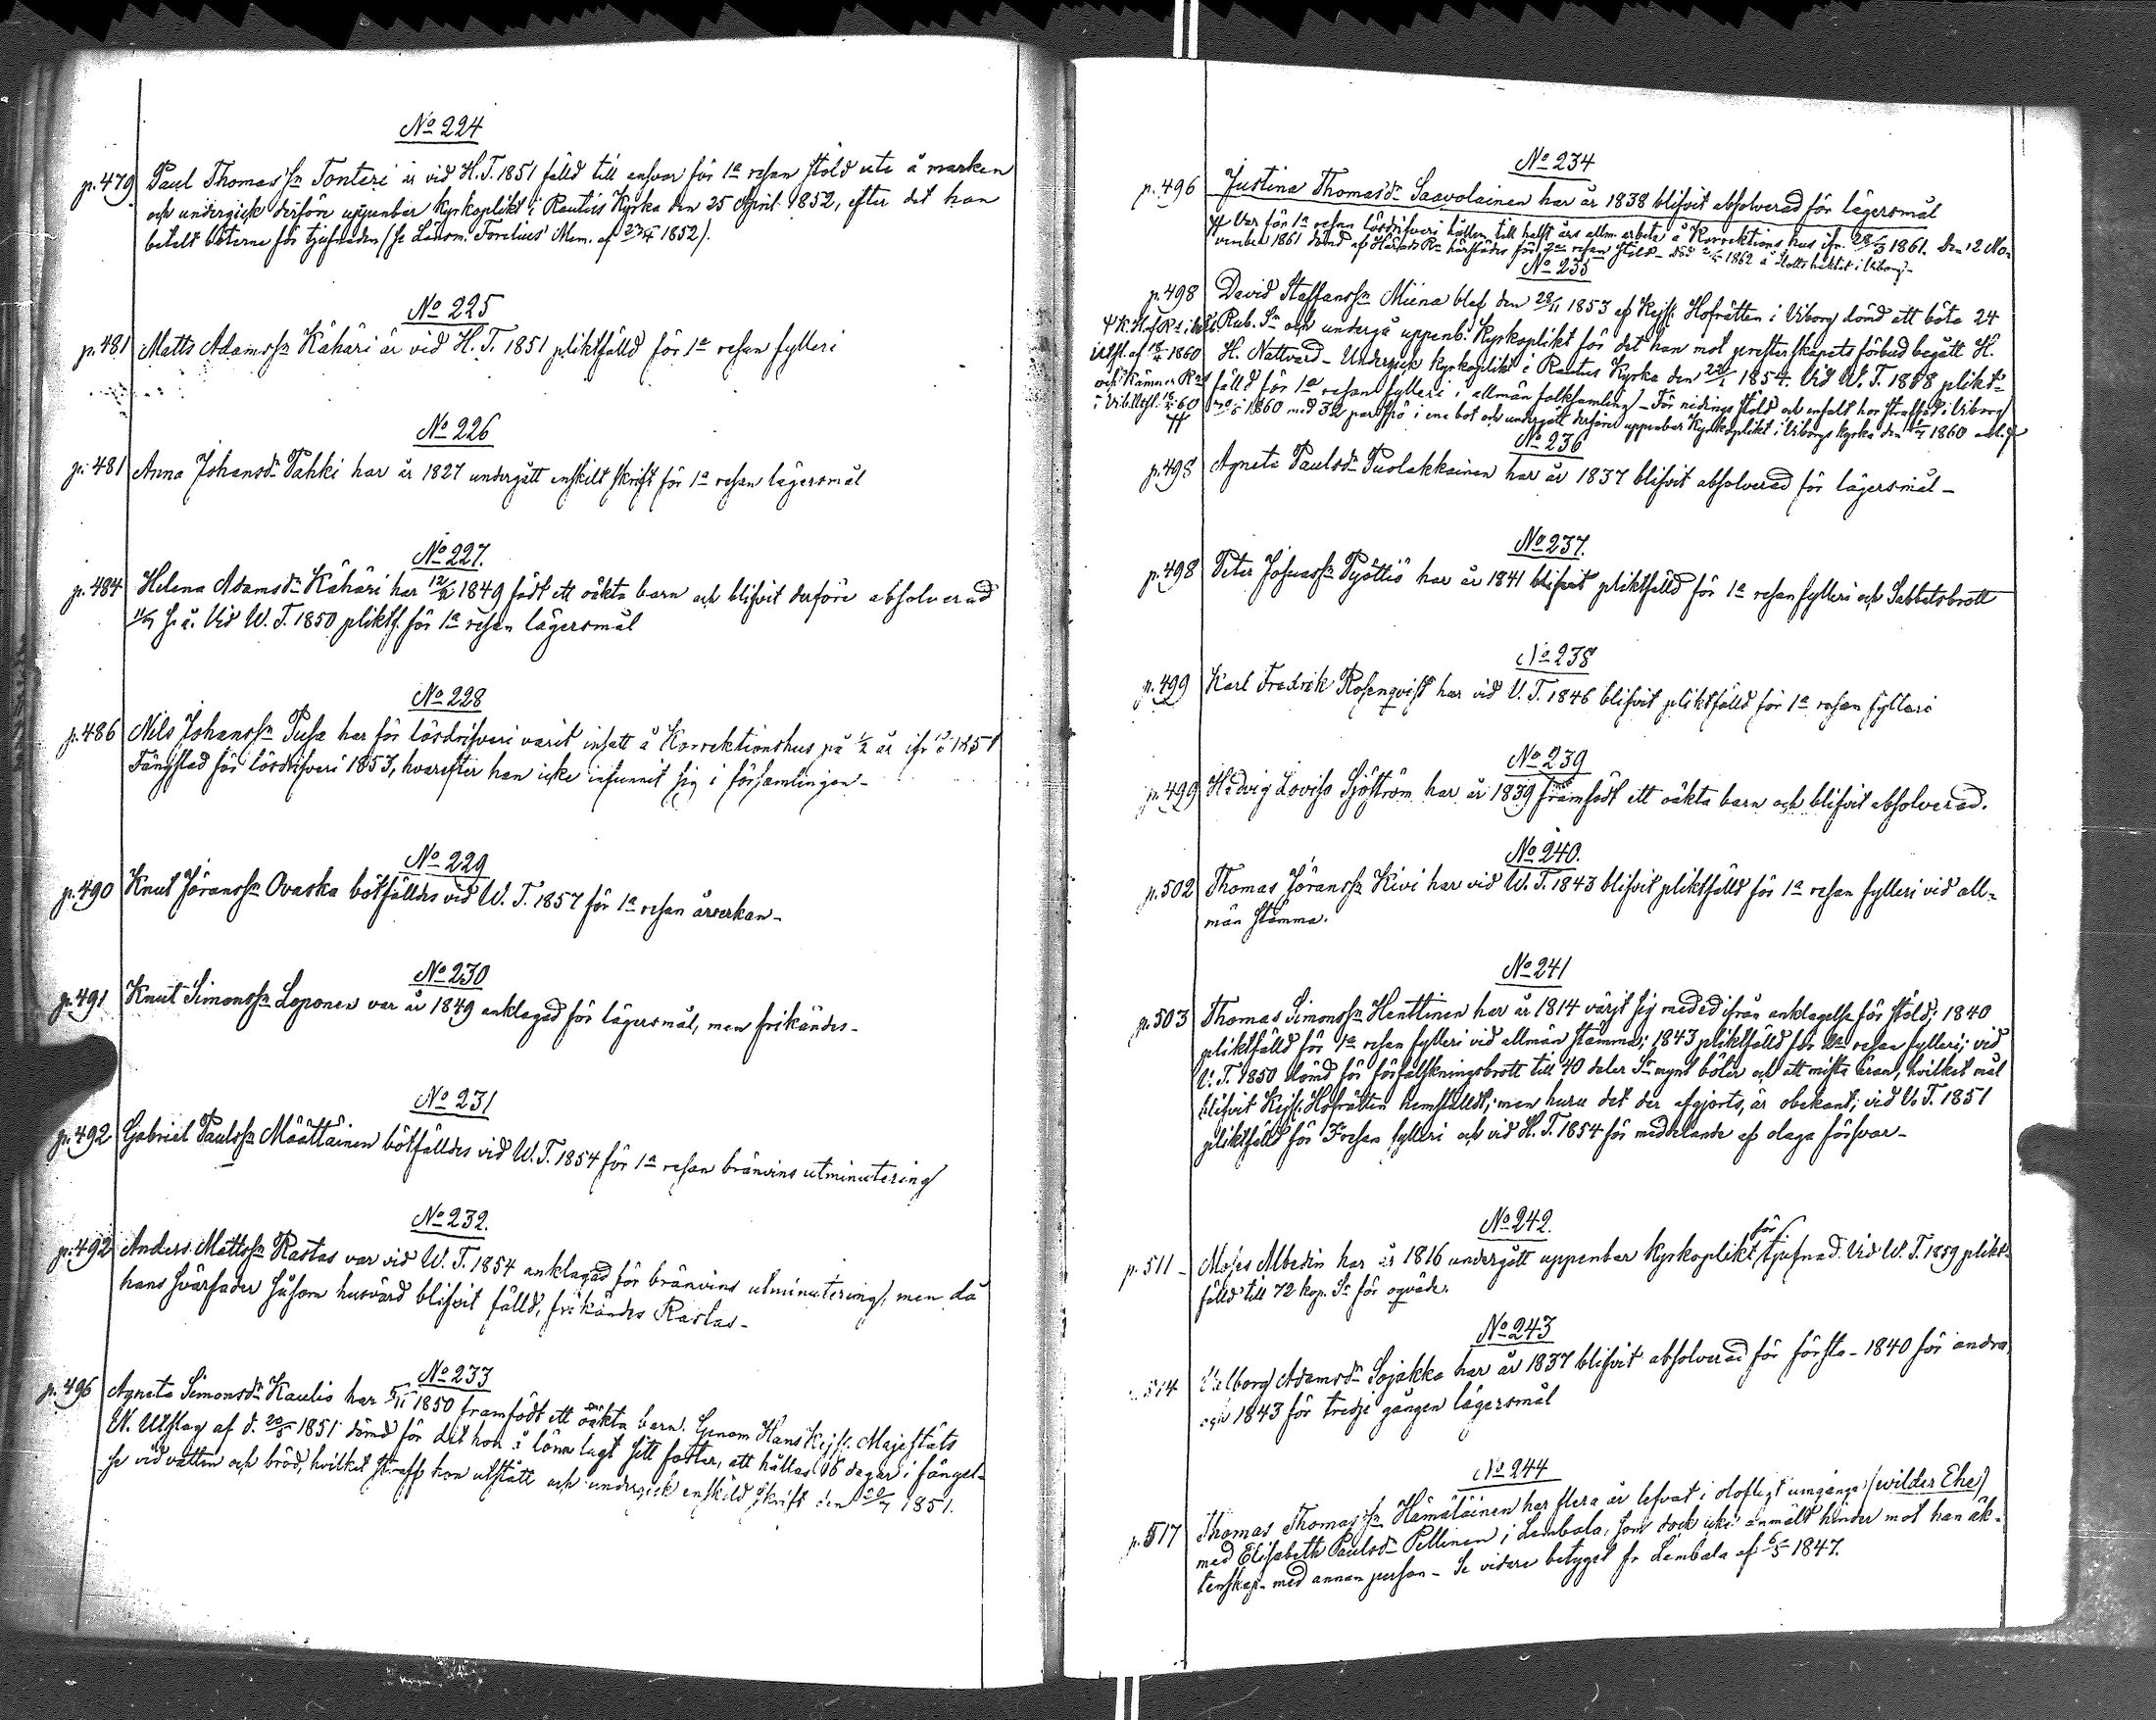 No 224
p. 479 Paul Thomas sn Tonteri är vid H. T. 1851 fälld till ansvar för 1a resan stöld ute å marken
och undergick derföre uppenbar Kyrkoplikt i Rautus Kyrka den 25 April 1852, efter det han
betalt böterna för tjufnaden (se Länsm. Forelius' Mem. af 1852).
No 225
p. 481 Matts Adamssn Kähäri är vid H. T. 1851 pliktfälld för 1a resan fylleri
No 226
p. 481 Anna Johansdr Pahki har år 1827 undergått enskilt skrift för 1a resan lägersmål
No 227.
p. 484 Helena Adamsdr Kähäri har 1849 födt ett oäkta barn och blifvit derföre absolverad
s. å. Vid W. T. 1850 pliktf. för 1a resan lägersmål
No 228
p. 486 Nils Johanssn Pusa har för lösdrifveri varit insatt å Korrektionshus på ½ år ifr 1851
Fängslad för lösdrifveri 1853, hvarefter han icke infunnit sig i församlingen -
No 229
p. 490 Knut Jöranssn Ovaska bötfälldes vid W. T. 1857 för 1a resan åverkan -
No 230
p. 491 Knut Simonssn Loponen var år 1849 anklagad för lägersmål, men frikändes -
No 231
p. 492 Gabriel Paulssn Määttäinen bötfälldes vid W. T. 1854 för 1a resan bränvins utminutering
No 232.
p. 492 Anders Mattssn Rastas var vid W. T. 1854 anklagad för bränvins utminutering, men då
hans svärfader såsom husvärd blifvit fälld, frikändes Rastas -
No 233
p. 496 Agneta Simonsdr Kaulio har 1850 framfödt ett oäkta barn. Genom Hans Kejs. Majestäts
Utslag af d. 1851 dömd för det hon å lönn lagt sitt foster, att hållas 16 dagar i fängel-
se vid vatten och bröd, hvilket straff hon utstått och undergick enskild skrift den 1851.
No 234
p. 496 Justina Thomasdr Saavolainen har år 1838 blifvit absolverad för lägersmål
Var för 1a resan lösdrifveri hållen till halft års allm. arbete å Korrektions hus ifr. 1861. Den 12 No-
vember 1861 dömd af Härads Rn härstädes för 2a resan stöld - Död 1862 å Slottshäktet i Viborg -
No 235
p. 498 David Staffanssn Miina blef den 1853 af Kejs. Hofrätten i Viborg dömd att böta 24
Rub. Sr och undergå uppenb. Kyrkoplikt för det han mot presterskapets förbud begått H.
H. Nattvard - Undergick kyrkoplikt i Rautus Kyrka den 1854. Vid W. T. 1858 plikt-
fälld för 1a resan fylleri i allmän folksamling - För nidings stöld och enfalt hor straffad i Viborg
1860 med 32 par spö i ene bot och undergått derföre uppenbar Kyrkoplikt i Viborgs kyrka den 1860
K. Hof Rn i
Utsl. af 1860
och Kämner Rns
i Vib. Utsl. 60
No 236
p. 498 Agneta Paulsdr Puolakkainen har år 1837 blifvit absolverad för lägersmål -
No 237.
p. 498 Peter Josuassn Pyöttiö har år 1841 blifvit pliktfälld för 1a resan fylleri och Sabbatsbrott
No 238
p. 499 Karl Fredrik Rosenqvist har vid V. T. 1846 blifvit pliktfälld för 1a resan fylleri
No 239
p. 499 Hedvig Lovisa Sjöström har år 1839 framfödt ett oäkta barn och blifvit absolverad.
No 240.
p. 502 Thomas Jöranssn Kivi har vid W. T. 1843 blifvit pliktfälld för 1a resan fylleri vid all-
män stämma.
No 241
p. 503 Thomas Simonssn Henttinen har år 1814 värjt sig med ed ifrån anklagelse för stöld; 1840
pliktfälld för 1a resan fylleri vid allmän stämma; 1843 pliktfälld för 2a resan fylleri; vid
V. T. 1850 dömd för förfalskningsbrott till 40 daler Sr mynt böter och att mista äran, hvilket mål
blifvit Kejs. Hofrätten hemställdt; men huru det der afgjorts, är obekant; vid V. T. 1851
pliktfälld för resan fylleri och vid H. T. 1854 för meddelande af olaga försvar -
No 242.
p. 511 - Moses Albedin har år 1816 undergått uppenbar kyrkoplikt för tjufnad. Vid W. T. 1859 plikt-
fälld till 72 kop. Sr för oqväde.
No 243
514 Valborg Adamsdr Sojakka har år 1837 blifvit absolverad för första - 1840 för andra,
och 1843 för tredje gången lägersmål
No 244
p. 517 Thomas Thomassn Hämäläinen har flera år lefvat i olofligt umgänge (wilder Ehe)
med Elisabeth Paulsdr Pellinen i Lembala, som dock icke anmält hinder mot han äk-
tenskap med annan person - Se vidare betyget fr Lembala af 1847.